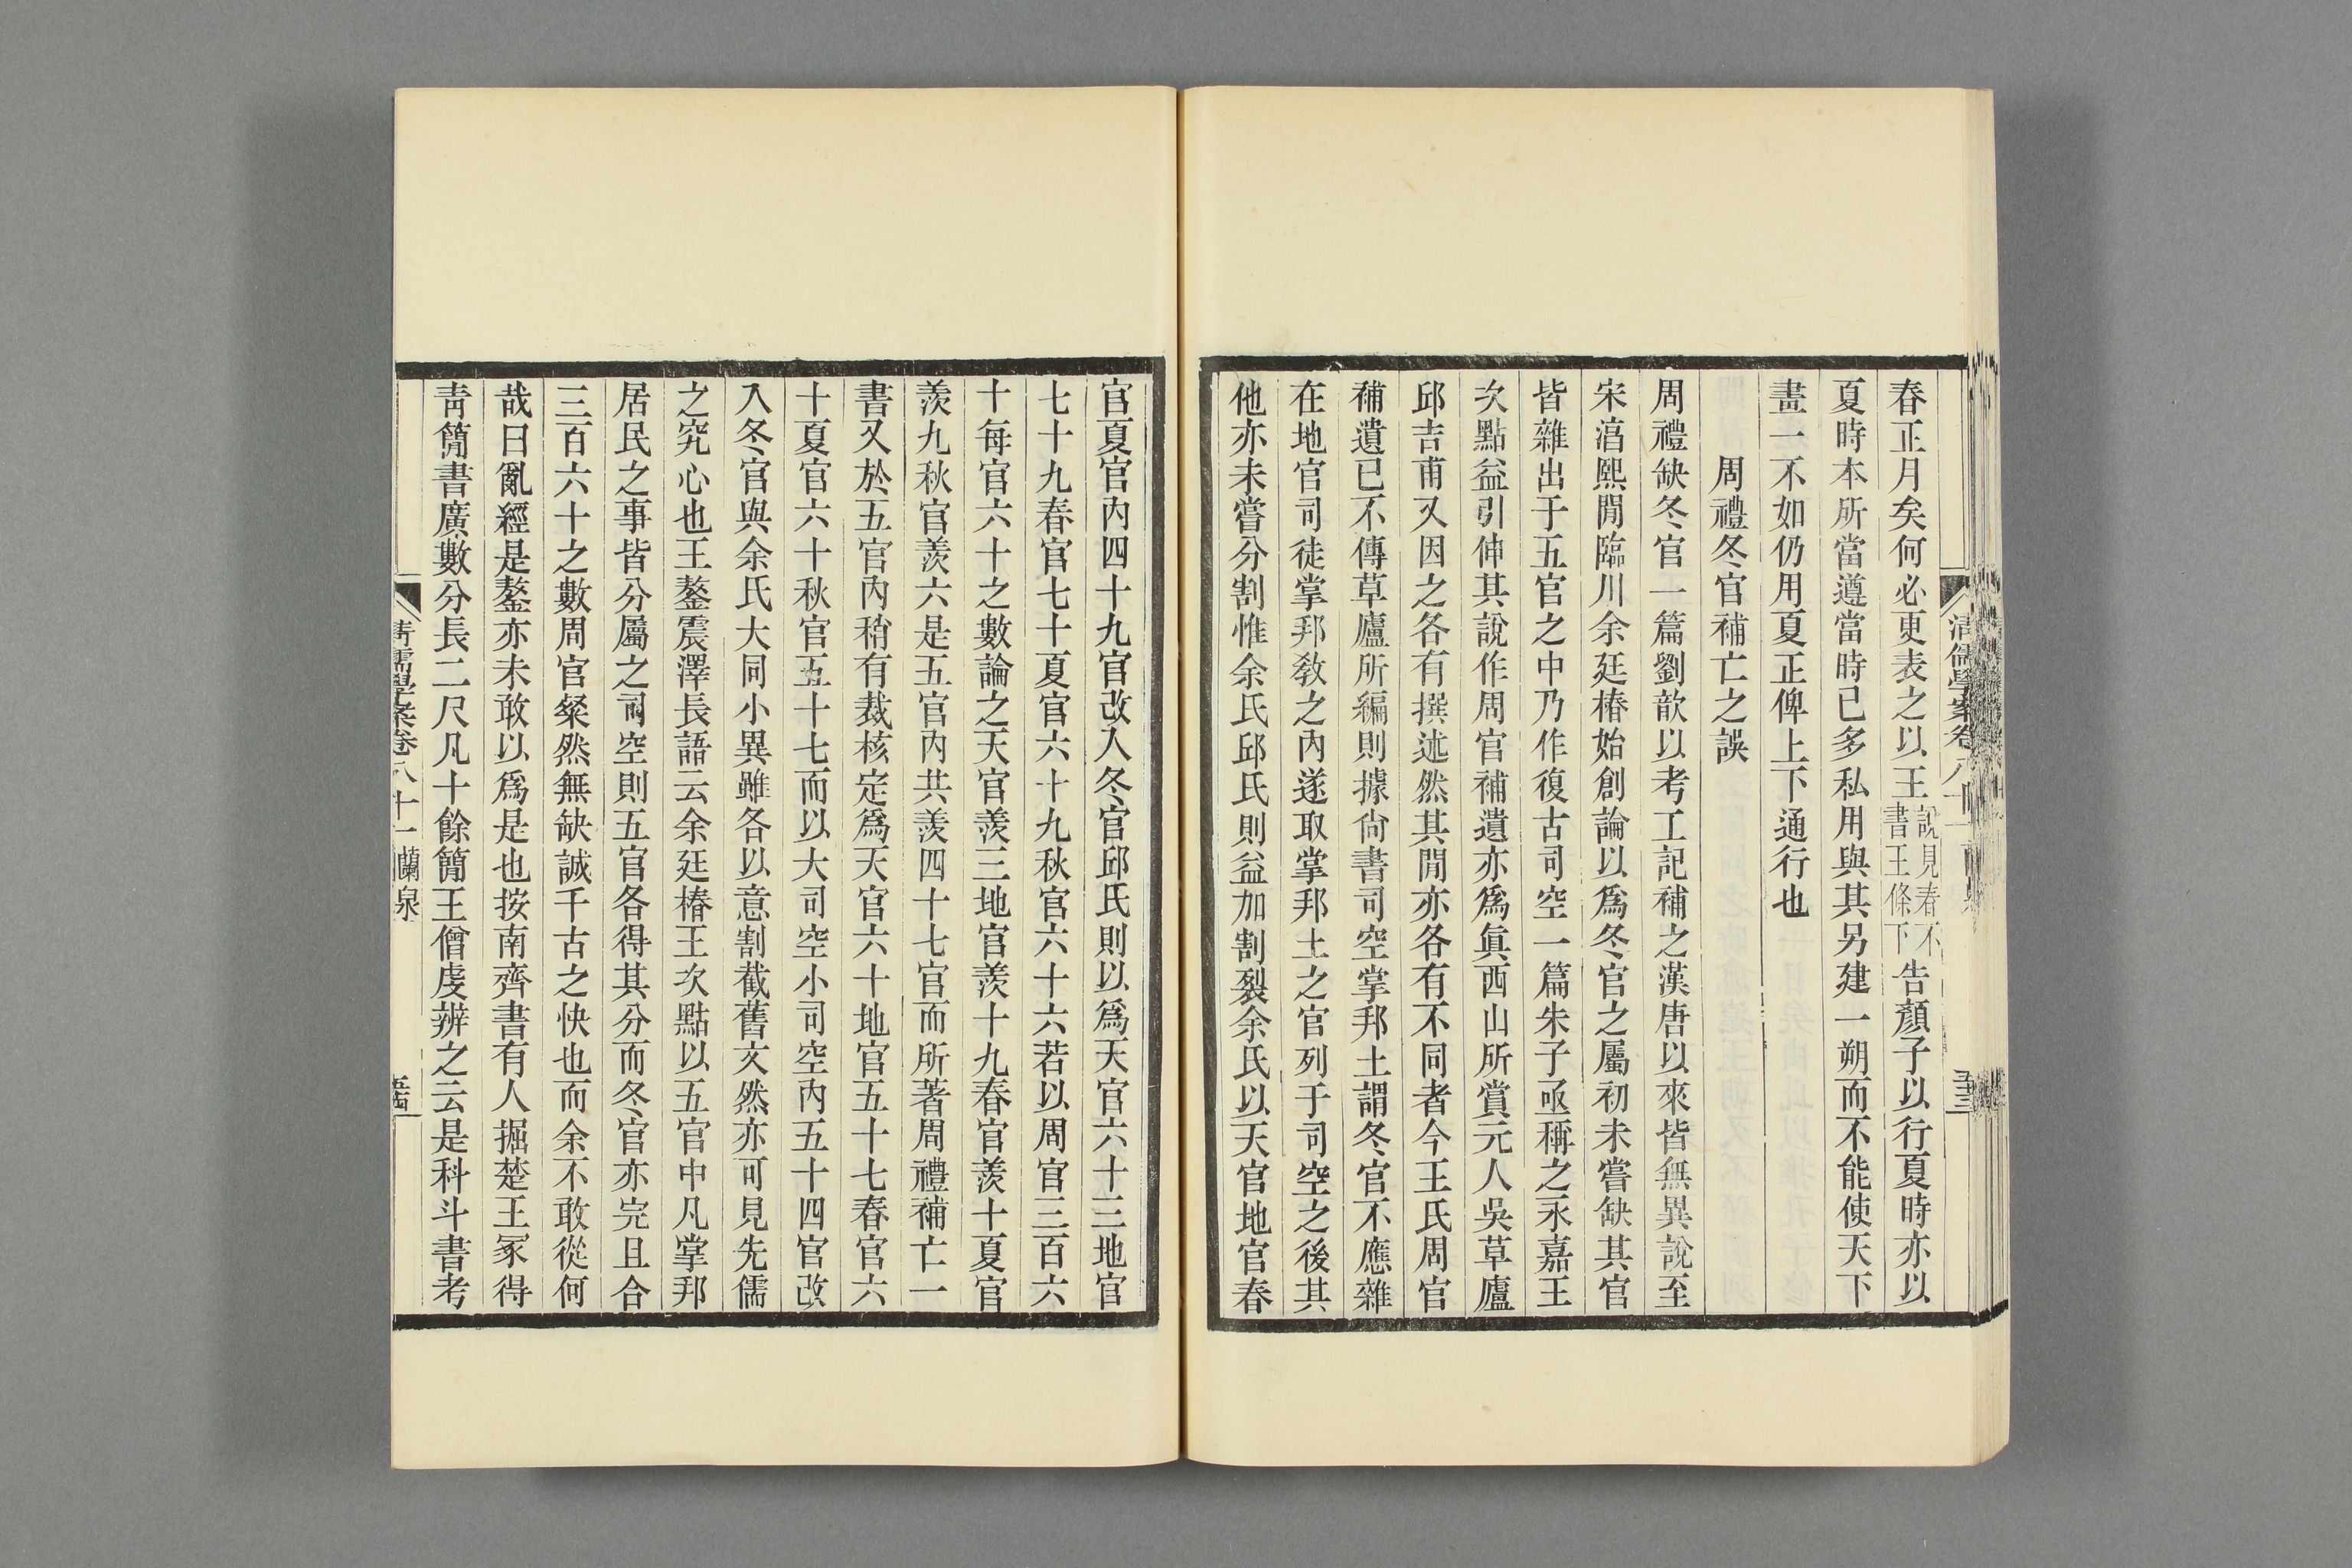 春正月矣何必更表之以王說見春不書王條下告顏子以行夏時亦以
夏時本所當遵當時已多私用與其另建一朔而不能使天下
畫一不如仍用夏正俾上下通行也
周禮冬官補亡之誤
周禮缺冬官一篇劉歆以考工記補之漢唐以來皆無異說至
宋淳熙閒臨川余廷椿始創論以爲冬官之屬初未嘗缺其官
皆雜出于五官之中乃作復古司空一篇朱子亟稱之永嘉王
次點益引伸其說作周官補遺亦爲眞西山所賞元人吳草廬
邱吉甫又因之各有撰述然其閒亦各有不同者今王氏周官
補遺已不傳草廬所編則據尙書司空掌邦土謂冬官不應雜
在地官司徒掌邦敎之內遂取掌邦土之官列于司空之後其
他亦未嘗分割惟余氏邱氏則益加割裂余氏以天官地官春
官夏官內四十九官改入冬官邱氏則以爲天官六十三地官
七十九春官七十夏官六十九秋官六十六若以周官三百六
十每官六十之數論之天官羨三地官羨十九春官羨十夏官
羨九秋官羨六是五官內共羨四十七官而所著周禮補亡一
書又於五官內稍有裁核定爲天官六十地官五十七春官六
十夏官六十秋官五十七而以大司空小司空內五十四官改
入冬官與余氏大同小異雖各以意割截舊文然亦可見先儒
之究心也王鏊震澤長語云余廷椿王次點以五官中凡掌邦
居民之事皆分屬之司空則五官各得其分而冬官亦完且合
三百六十之數周官粲然無缺誠千古之快也而余不敢從何
哉曰亂經是鏊亦未敢以爲是也按南齊書有人掘楚王冢得
靑簡書廣數分長二尺凡十餘簡王僧虔辨之云是科斗書考
清儒學案卷八十一 蘭泉
五十四